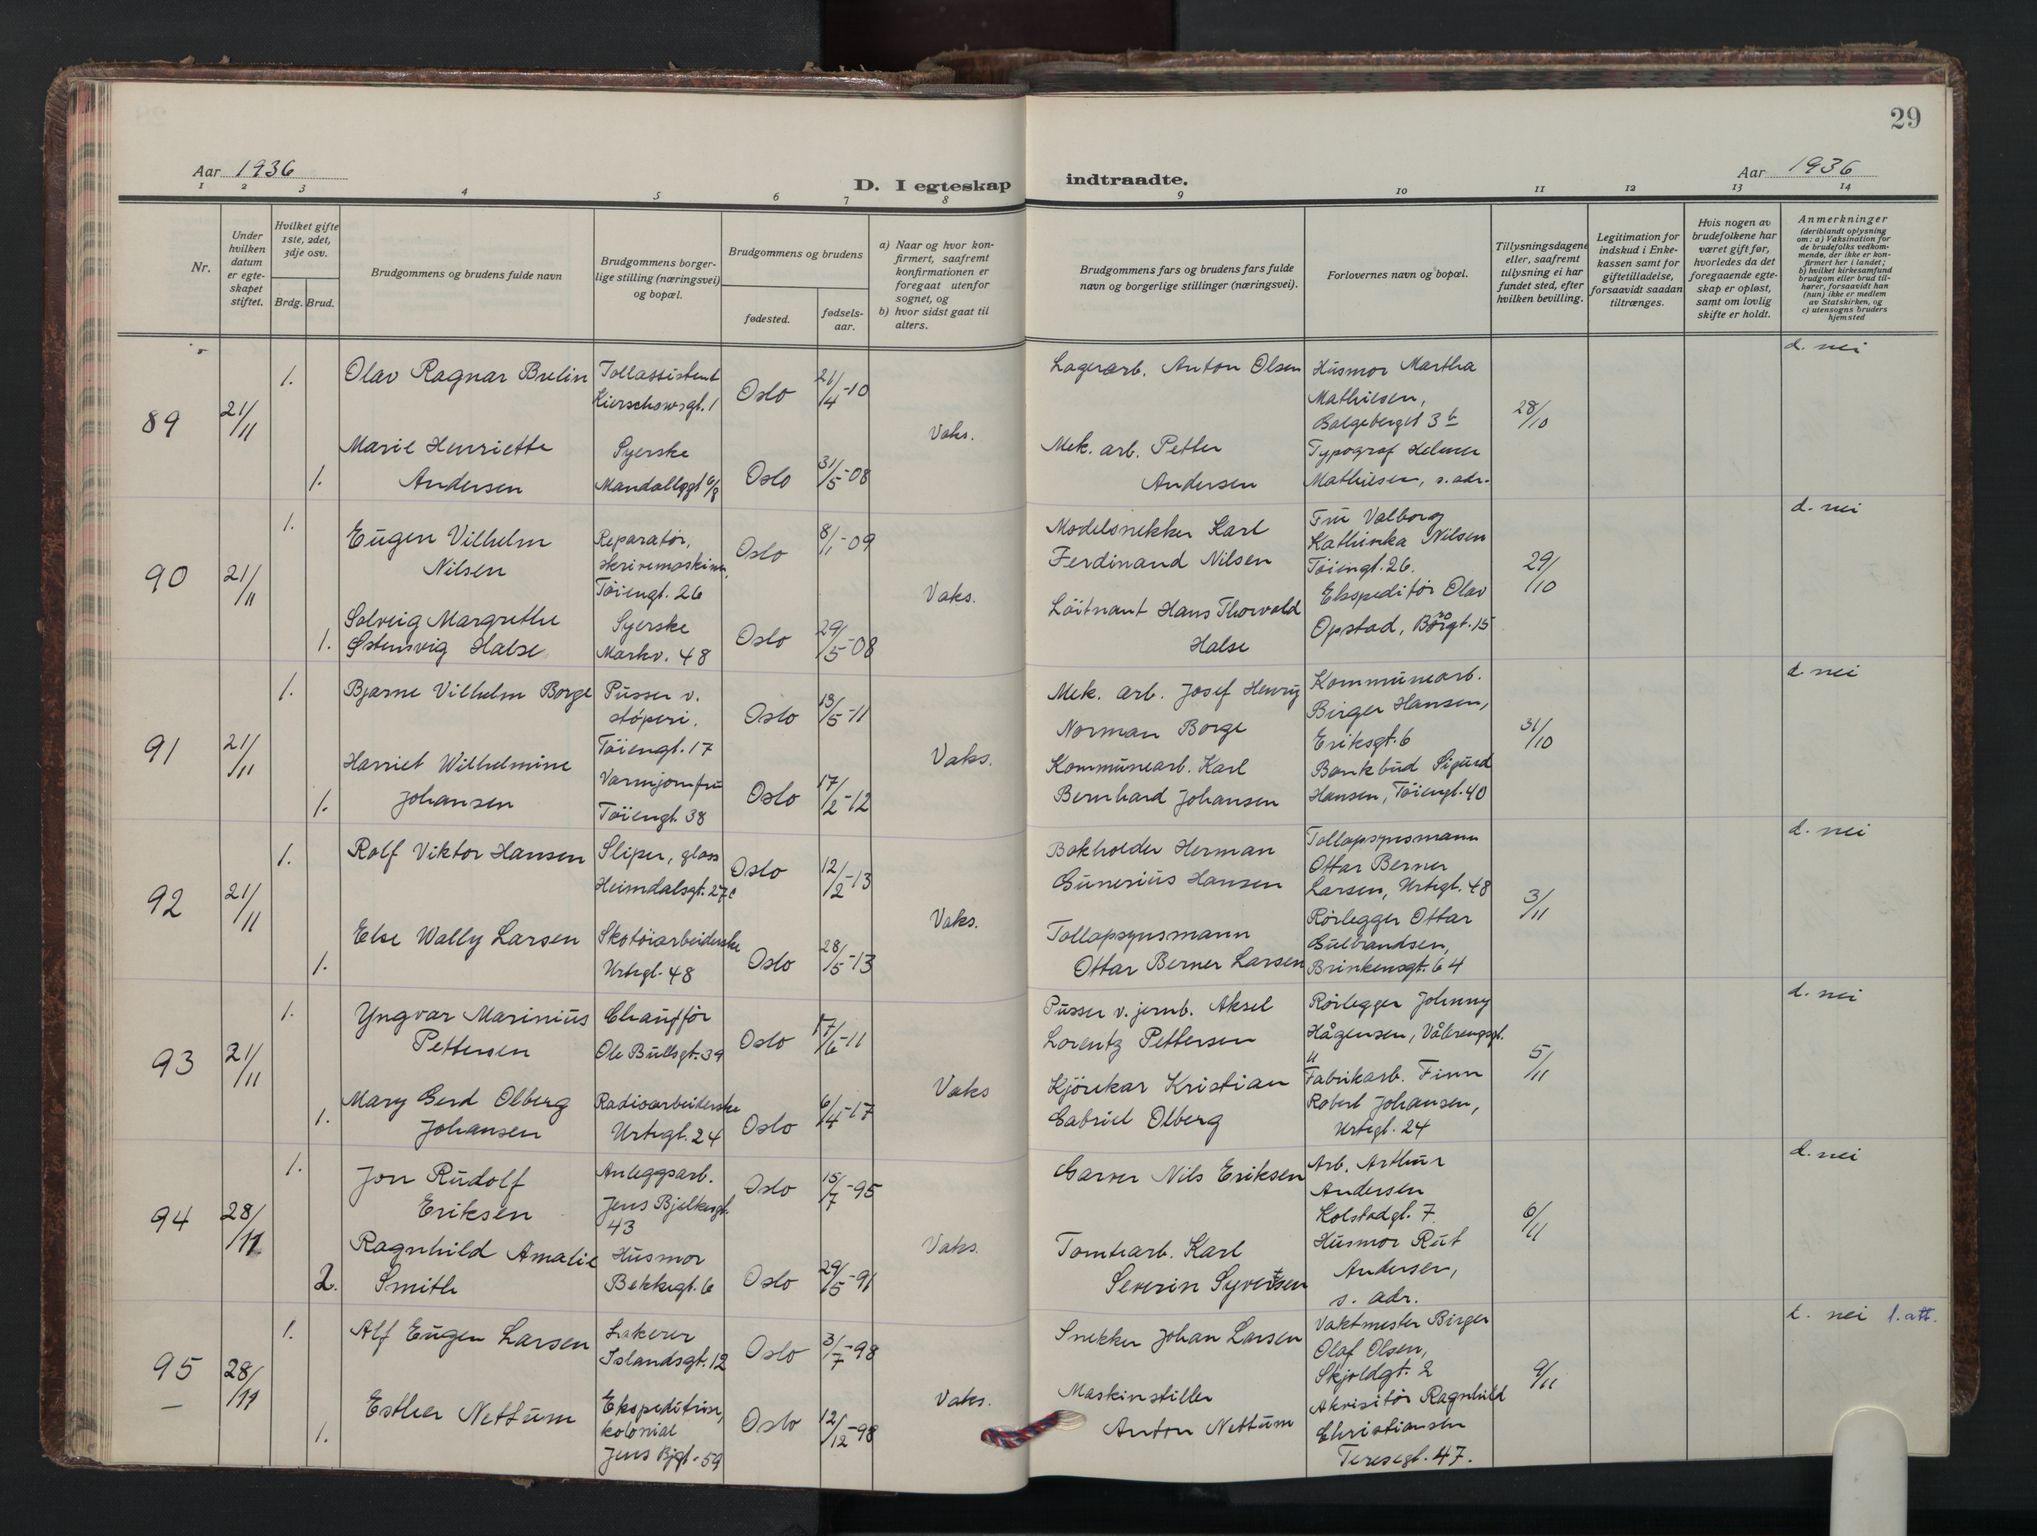 29
Aar 1936
D. I egteskap indtraadte.
Aar 1936
1 2 3 4 5 6 7 8 9 10 11 12 13 14
Nr.
Under hvilken datum er egteskapet stiftet.
Hvilket gifte 1ste, 2det, 3dje osv.
Brdg. Brud.
Brudgommens og brudens fulde navn
Brudgommens borgerlige stilling (næringsvei) og bopæl.
Brudgommens og brudens
fødested.
fødselsaar.
a) Naar og hvor konfirmert, saafremt konfirmationen er foregaat utenfor sognet, og
b) hvor sidst gaat til alters.
Brudgommens fars og brudens fars fulde navn og borgerlige stillinger (næringsvei).
Forlovernes navn og bopæl.
Tillysningsdagene eller, saafremt tillysning ei har fundet sted, efter hvilken bevilling.
Legitimation for indskud i Enkekassen samt for giftetilladelse, forsaavidt saadan tiltrænges.
Hvis nogen av brudefolkene har været gift før, hvorledes da det foregaaende egteskap er opløst, samt om lovlig skifte er holdt.
Anmerkninger
(deriblandt oplysning om: a) Vaksination for de brudefolks vedkommende, der ikke er konfirmert her i landet; b) hvilket kirkesamfund brudgom eller brud tilhører, forsaavidt han (hun) ikke er medlem av Statskirken, og c) utensogns bruders hjemsted
89 21/11
1. Olav Ragnar Brelin
Tollassistent
Hierschowsgt. 1
Oslo 21/4-10
1. Marie Henriette
Andersen
Syerske
Mandallsgt 6/8
Oslo 31/5-08
Vaks.
Lagerarb. Anton Olsen
Mek. arb. Petter
Andersen
Husmor Martha
Mathiesen,
Bolgeberget 3b
Typograf Helmer
Mathiesen, s. adr.
28/10
d. nei
90 21/11
1. Eugen Vilhelm
Nilsen
Reparatør,
skrivemaskiner,
Töiengt. 26
Oslo 8/1-09
1. Solveig Margrethe
Østensvig Halse
Syerske
Markv. 48
Oslo 29/5-08
Vaks.
Modelsnekker Karl
Ferdinand Nilsen
Löitnant Hans Thorvald
Halse
Fru Valborg
Kathinka Nilsen
Töiengt. 26.
Ekspeditör Olav
Opstad, Borggt. 15
29/10
d. nei
91 21/11
1. Bjarne Vilhelm Borge
Pusser v.
støperi.
Töiengt. 17
Oslo 13/5-11
1. Harriet Wilhelmine
Johansen
Varmjomfru
Töiengt. 38
Oslo 17/2-12
Vaks.
Mek. arb. Josef Henry
Norman Borge
Kommunearb. Karl
Bernhard Johansen
Kommunearb.
Birger Hansen,
Eriksgt. 6
Bankbud Sigurd
Hansen, Töiengt. 40
31/10
d. nei
92 21/11
1. Rolf Viktor Hansen
Sliper, glass
Heimdalsgt. 27c
Oslo 12/2-13
1. Else Wally Larsen
Skotöiarbeiderske
Urtegt. 48
Oslo 28/5-13
Vaks.
Bokholder Herman
Gunerius Hansen
Tollopsynsmann
Ottar Berner Larsen
Tollopsynsmann
Ottar Berner
Larsen, Urtegt. 48
Rørlegger Ottar
Gulbrandsen,
Brinkensgt. 64
3/11
d. nei
93 21/11
1. Yngvar Marinius
Pettersen
Chauffør
Ole Bullsgt. 39
Oslo 17/6-11
1. Mary Gerd Olberg
Johansen
Radioarbeiderske
Urtegt. 24
Oslo 6/4-17
Vaks
Pusser v. jernb. Aksel
Lorentz Pettersen
Kjörekar Kristian
Gabriel Olberg
Rørlegger Johnny
Hågensen, Vålerengsgt.
11
Fabrikarb. Finn
Robert Johansen,
Urtegt. 24
5/11
d. nei
94 28/11
1. Jon Rudolf
Eriksen
Anleggsarb.
Jens Bjelkesgt.
43
Oslo 15/7-95
2. Ragnhild Amalie
Smith
Husmor
Bekkegt. 6
Oslo 29/5-91
Vaks.
Garver Nils Eriksen
Tomtearb. Karl
Severin Syvertsen
Arb. Arthur
Andersen
Kolstadgt. 7
Husmor Rut
Andersen,
s. adr.
6/11
d. nei
95 28/11
1. Alf Eugen Larsen
Lakerer
Islandsgt. 12
Oslo 3/7-98
1. Esther Nettum
Ekspeditrise,
kolonial
Jens Bjgt. 59
Oslo 12/12-98
Vaks.
Snekker Johan Larsen
Maskinstiller
Anton Nettum
Vaktmester Birger
Olaf Olsen,
Skjoldgt. 2
Akvisitör Ragnhild
Christiansen
Teresegt. 47.
9/11
d. nei 1. att.